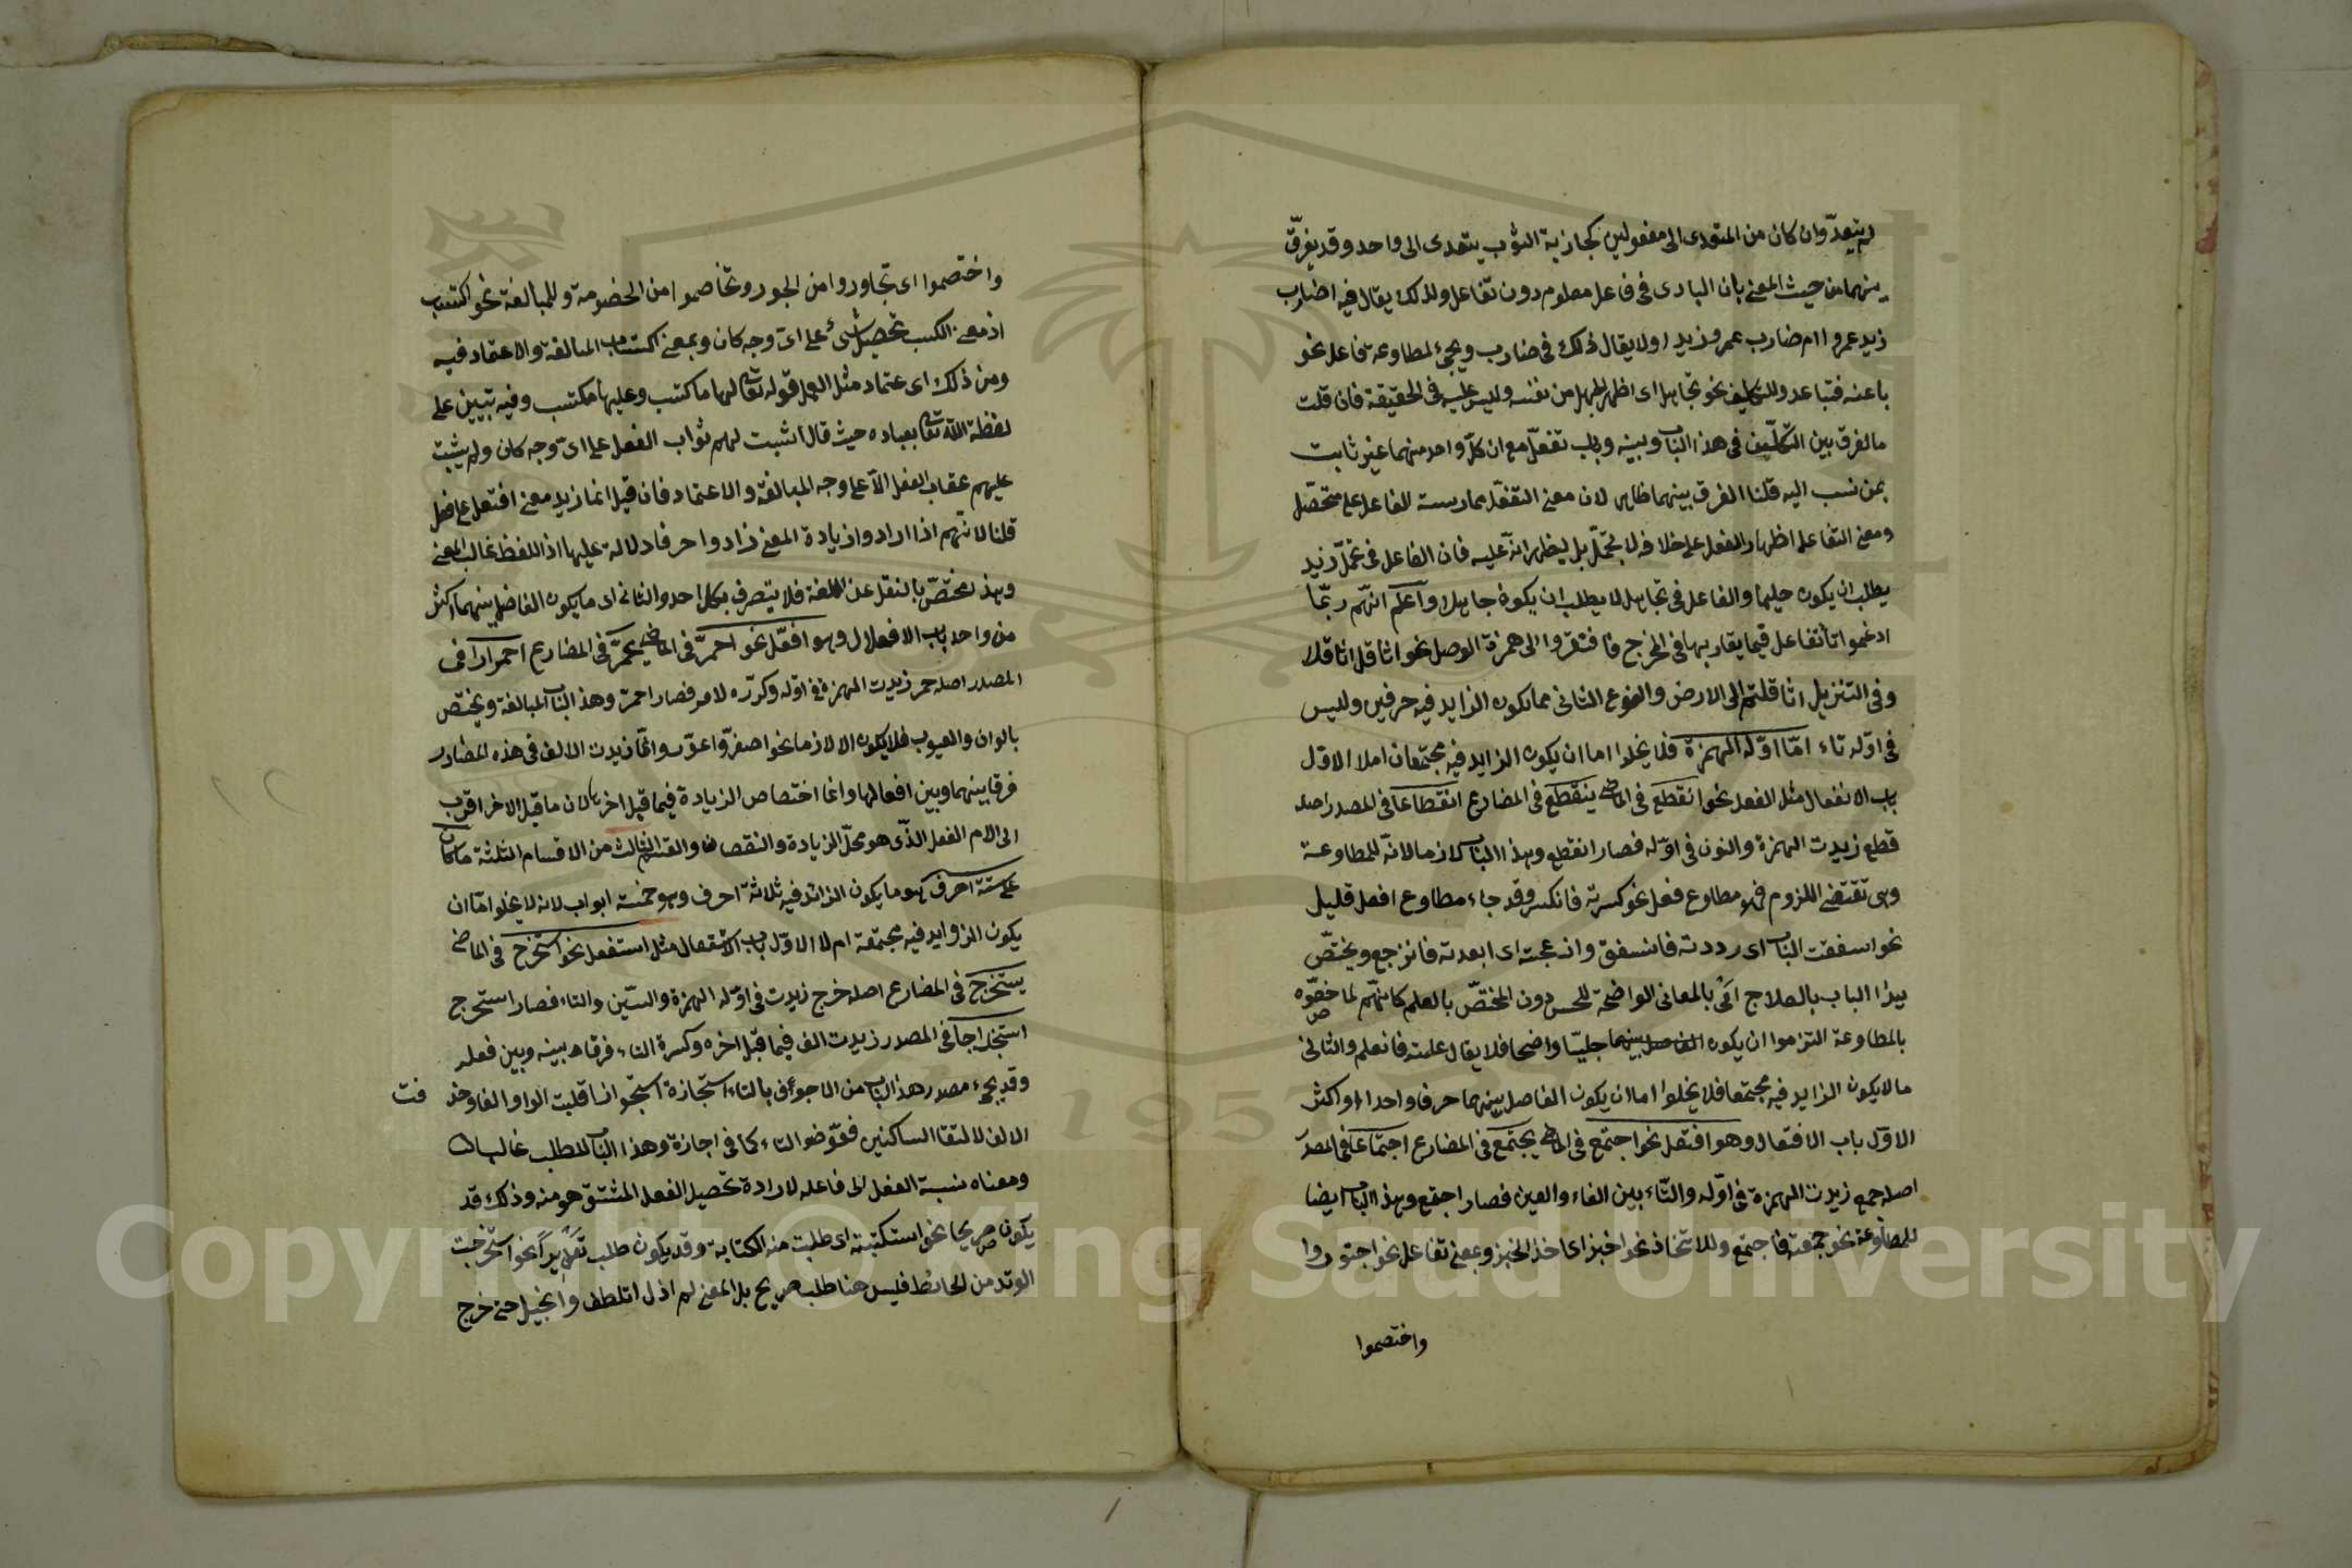 لم يتعدّ وان كان من المتعدى الى مفعولين كجاذبة الثوب يتعدى الى واحد وقد يفرق
بينهما من حيث المعنى بان البادى فى فاعل معلوم دون تفاعل ولذلك يقال فيه اضارب
زيد عمروا ام ضارب عمرو زيدا ولا يقال ذلك فى ضارب ويجئ لمطاوعة فاعل نحو
باعدته فتباعد وللتكليف نحو تجاهل اى اظهر الجهل من نفسه وليس عليه فى الحقيقة فان قلت
ما الفرق بين التكليف فى هذا الباب وبينه وباب تفعّل مع ان كلّ واحد منهما غير ثابت
بمن نسب اليه قلنا الفرق بينهما ظاهر لان معنى التفعّل ممارسة الفاعل على متحصّل
ومعنى التفاعل اظهار الفعل على خلافه لا بتحمّل بل ليظهر انه عليه فان الفاعل فى تحلّم زيد
يطلب ان يكون حليما والفاعل فى تجاهل لا يطلب ان يكون جاهلا واعلم انهم ربّما
ادغموا تا تفاعل فيما يقاربها فى المخرج فافتقروا الى همزة الوصل نحو اثاقل اثاقلا
وفى التنزيل اثاقلتم الى الارض والنوع الثانى مما يكون الزايد فيه حرفين وليس
فى اوّله تاء امّا اوّله الهمزة فلا يخلوا اما ان يكون الزايد فيه مجتمعان ام لا الاوّل
باب الانفعال مثل انفعل نحو انقطع فى الماضى ينقطع فى المضارع انقطاعا فى المصدر اصله
قطع زيدت الهمزة والنون فى اوّله فصار انقطع وهذا الباب لازما لانه للمطاوعة
وهى تقتضى اللزوم فهو مطاوع فعل نحو كسرته فانكسر وقد جاء مطاوع افعل قليل
نحو اسفقت الباب اى رددته فانسفق وازعجته اى ابعدته فانزعج ويختصّ
بهذا الباب بالعلاج اى بالمعانى الواضحة للحس دون المختصّ بالعلم كانهم لما خصّوه
بالمطاوعة التزموا ان يكون جليّا واضحا فلا يقال علمته فانعلم والثانى
ما لا يكون الزايد فيه مجتمعا فلا يخلوا اما ان يكون الفاصل بينهما حرفا واحدا او اكثر
الاوّل باب الافتعال وهو افتعل نحو اجتمع فى الماضى يجتمع فى المضارع اجتماعا فى المصدر
اصله جمع زيدت الهمزة فى اوّله والتاء بين الفاء والعين فصار اجتمع وهذا الباب ايضا
للمطاوعة نحو جمعته فاجتمع وللاتخاذ نحو اختبز اى اخذ الخبز وبمعنى تفاعل نحو اجتوروا
واختصموا
واختصموا اى تجاوروا من الجور وتخاصموا من الخصومة وللمبالغة نحو اكتسب
اذ معنى الكسب تحصيل شئ على اىّ وجه كان وبمعنى اكتساب المبالغة والاعتماد فيه
ومن ذلك اى اعتماد مثل العمل قوله تعالى لها ما كسبت وعليها ما اكتسبت وفيه تبيين على
لفظة الله تعالى بعباده حيث قال اثبت لهم ثواب الفعل على اىّ وجه كان ولم يثبت
عليهم عقاب الفعل الا على وجه المبالغة والاعتماد فان قيل انما زيد معنى افتعل على فعل
قلنا لانهم اذا ارادوا زيادة المعنى زادوا حرفا دلالة عليها اذ اللفظ غالب المعنى
وهذا مختصّ بالنقل عن اللغة فلا يتصرف بكل احد والثانى اى ما يكون الفاصل بينهما اكثر
من واحد باب الافعلال وهو افعلّ نحو احمرّ فى الماضى يحمرّ فى المضارع احمرارا فى
المصدر اصله حمر زيدت الهمزة فى اوّله وكرّره لامه فصار احمرّ وهذا الباب للمبالغة ويختصّ
بالوان والعيوب فلا يكون الا لازما نحو اصفرّ واعورّ وانّما زيدت الالف فى هذه المصادر
فرقا بينهما وبين افعالها وانما اختصاص الزيادة فيما قبل اخرها لان ما قبل الاخر اقرب
الى الام الفعل الذى هو محلّ الزيادة والنقصان والقسم الثالث من الاقسام الثلثة ما كان
على ستة احرف وهو ما يكون الزائد فيه ثلاثة احرف وهو خمسة ابواب لانه لا يخلوا امّا ان
يكون الزوايد فيه مجتمعة ام لا الاوّل باب الاستفعال مثل استفعل نحو استخرج فى الماضى
يستخرج فى المضارع اصله خرج زيدت فى اوّله الهمزة والسّين والتاء فصار استخرج
استخراجا فى المصدر زيدت الف فيما قبل اخره وكسرة التاء فرقا بينه وبين فعله
وقد يجئ مصدر هذا الباب من الاجوف بالتاء استجازة استجوازا قلبت الواو الفا وحذ فت
الالف لالتقا الساكنين فعوّضوا التاء كما فى اجازة وهذا الباب للطلب غالبا
ومعناه نسبة الفعل الى فاعله لارادة تحصيل الفعل المشتق هو منه وذلك قد
يكون صريحا نحو استكتبته اى طلبت منه الكتابة وقد يكون طلب تقديرا نحو استخرجت
الوتد من الحائط فليس هنا طلب صريح بل المعنى لم ازل اتلطف واتحيل حتى خرج